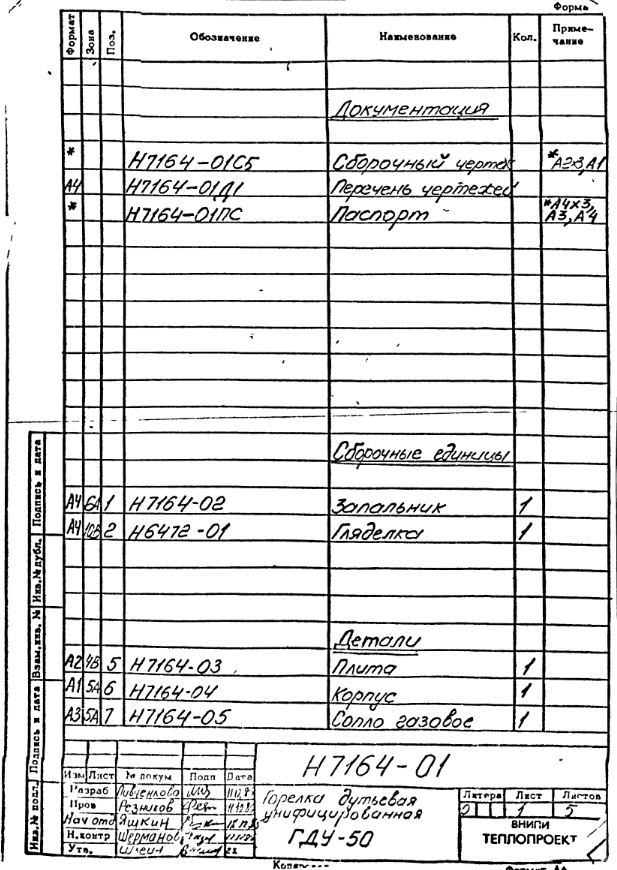 Форма
Формат Зона Поз. Обозначение Наименование Кол. Приме-чание
Документация
* Н7164-01СБ Сборочный чертеж *А2х3,А1
А4 Н7164-01Д1 Перечень чертежей
* Н7164-01ПС Паспорт *А4х3, А3, А4
Сборочные единицы
А4 6А 1 Н7164-02 Запальник 1
А4 10В 2 Н6472-01 Гляделка 1
Детали
А2 4В 5 Н7164-03 Плита 1
А1 5А 6 Н7164-04 Корпус 1
А3 5А 7 Н7164-05 Сопло газовое 1
Инв.№ подл. Подпись и дата Взам.инв. № Инв.№ дубл. Подпись и дата
Н7164-01
Изм Лист № докум Подп Дата
Разраб
Пров Резников
Нач отд Яшкин
Н.контр Шерманов
Утв.
Горелка дутьевая
унифицированная
ГДУ-50
Литера Лист Листов
1 5
ВНИПИ
ТЕПЛОПРОЕКТ
Формат А4